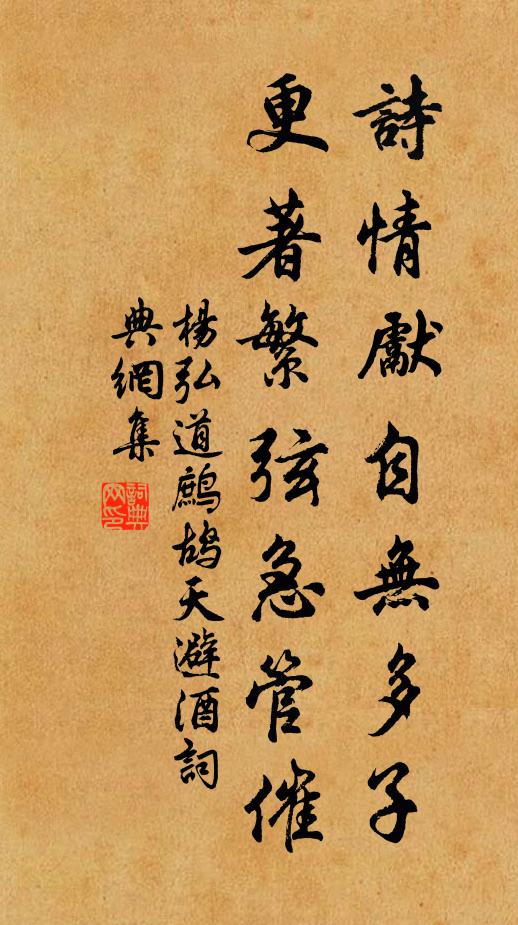 詩情獻自無多子
更著繁弦急管催
楊弘道鷓鴣天避酒詞
典網集
詞典
网印